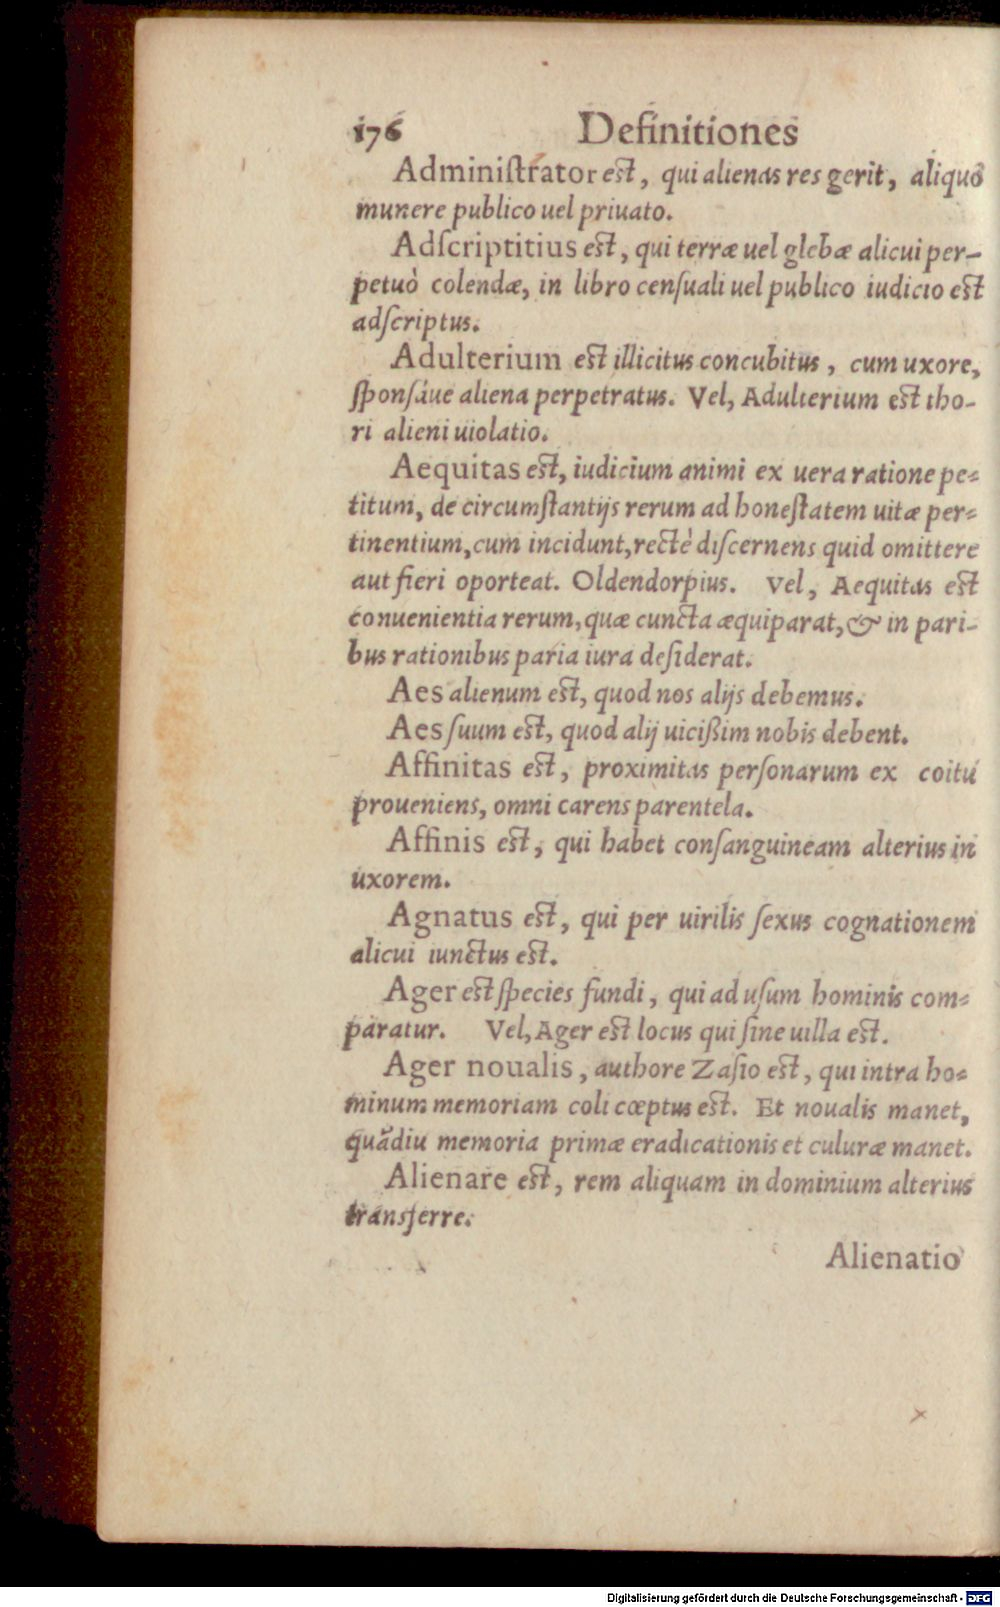 176 Definitiones
Adminiſtrator eſt, qui alienas res gerit, aliquo
munere publico uel priuato.
Adſcriptitius eſt, qui terræ uel glebæ alicui per-
petuò colendæ, in libro cenſuali uel publico iudicio eſt
adſcriptus.
Adulterium eſt illicitus concubitus, cum uxore,
ſponſáue aliena perpetratus. Vel, Adulterium eſt tho-
ri alieni uiolatio.
Aequitas eſt, iudicium animi ex uera ratione pe-
titum, de circumſtantijs rerum ad honeſtatem uitæ per-
tinentium, cum incidunt, rectè diſcernens quid omittere
aut fieri oporteat. Oldendorpius. Vel, Aequitas eſt
conuenientia rerum, quæ cuncta æquiparat, & in pari-
bus rationibus paria iura deſiderat.
Aes alienum eſt, quod nos alijs debemus.
Aes ſuum eſt, quod alij uicißim nobis debent.
Affinitas eſt, proximitas perſonarum ex coitu
proueniens, omni carens parentela.
Affinis eſt, qui habet conſanguineam alterius in
uxorem.
Agnatus eſt, qui per uirilis ſexus cognationem
alicui iunctus eſt.
Ager eſt ſpecies fundi, qui ad uſum hominis com-
paratur. Vel, Ager eſt locus qui ſine uilla eſt.
Ager noualis, authore Zaſio eſt, qui intra ho-
minum memoriam coli cœptus eſt. Et noualis manet,
quãdiu memoria primæ eradicationis et culuræ manet.
Alienare eſt, rem aliquam in dominium alterius
transferre.
Alienatio
Digitalisierung gefördert durch die Deutsche Forschungsgemeinschaft - DFG